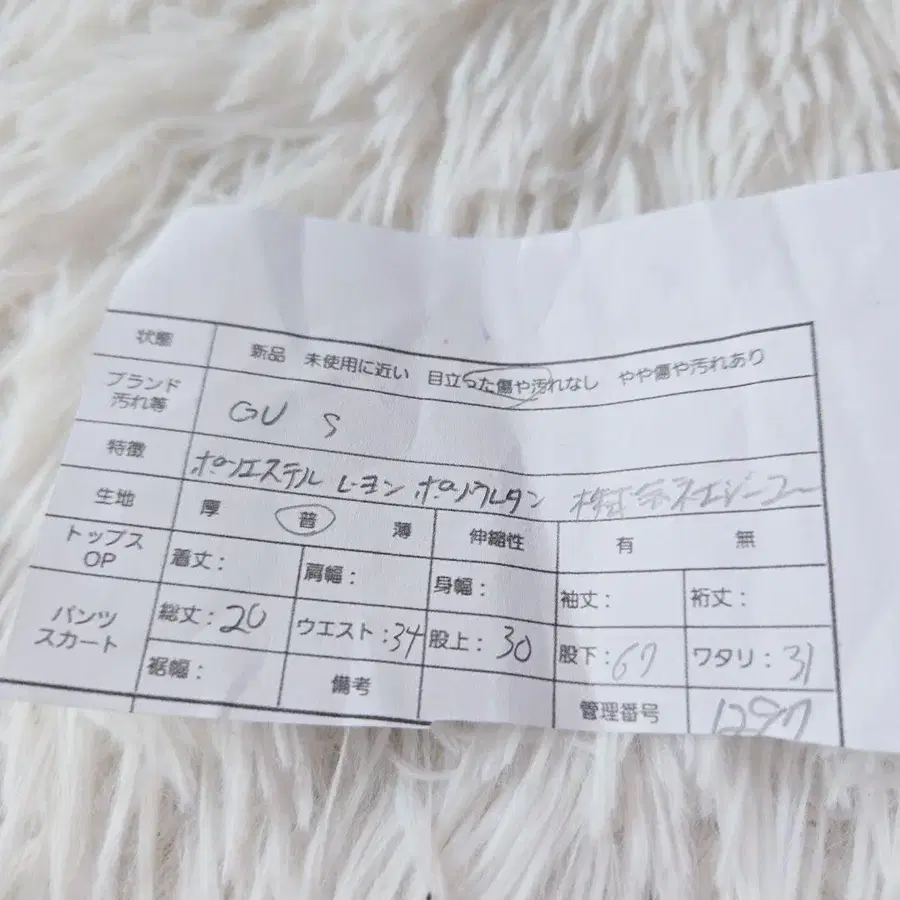 状態 新品 未使用に近い 目立った傷や汚れなし やや傷や汚れあり
ブランド 汚れ等 GU S
特徴 ポリエステル レーヨン ポリウレタン 株式会社ジーユー
生地 厚 普 薄 伸縮性 有 無
トップス OP 着丈: 肩幅: 身幅: 袖丈: 裄丈:
パンツ スカート 総丈:20 ウエスト:34 股上:30 股下:67 ワタリ:31
裾幅: 備考 管理番号 1297